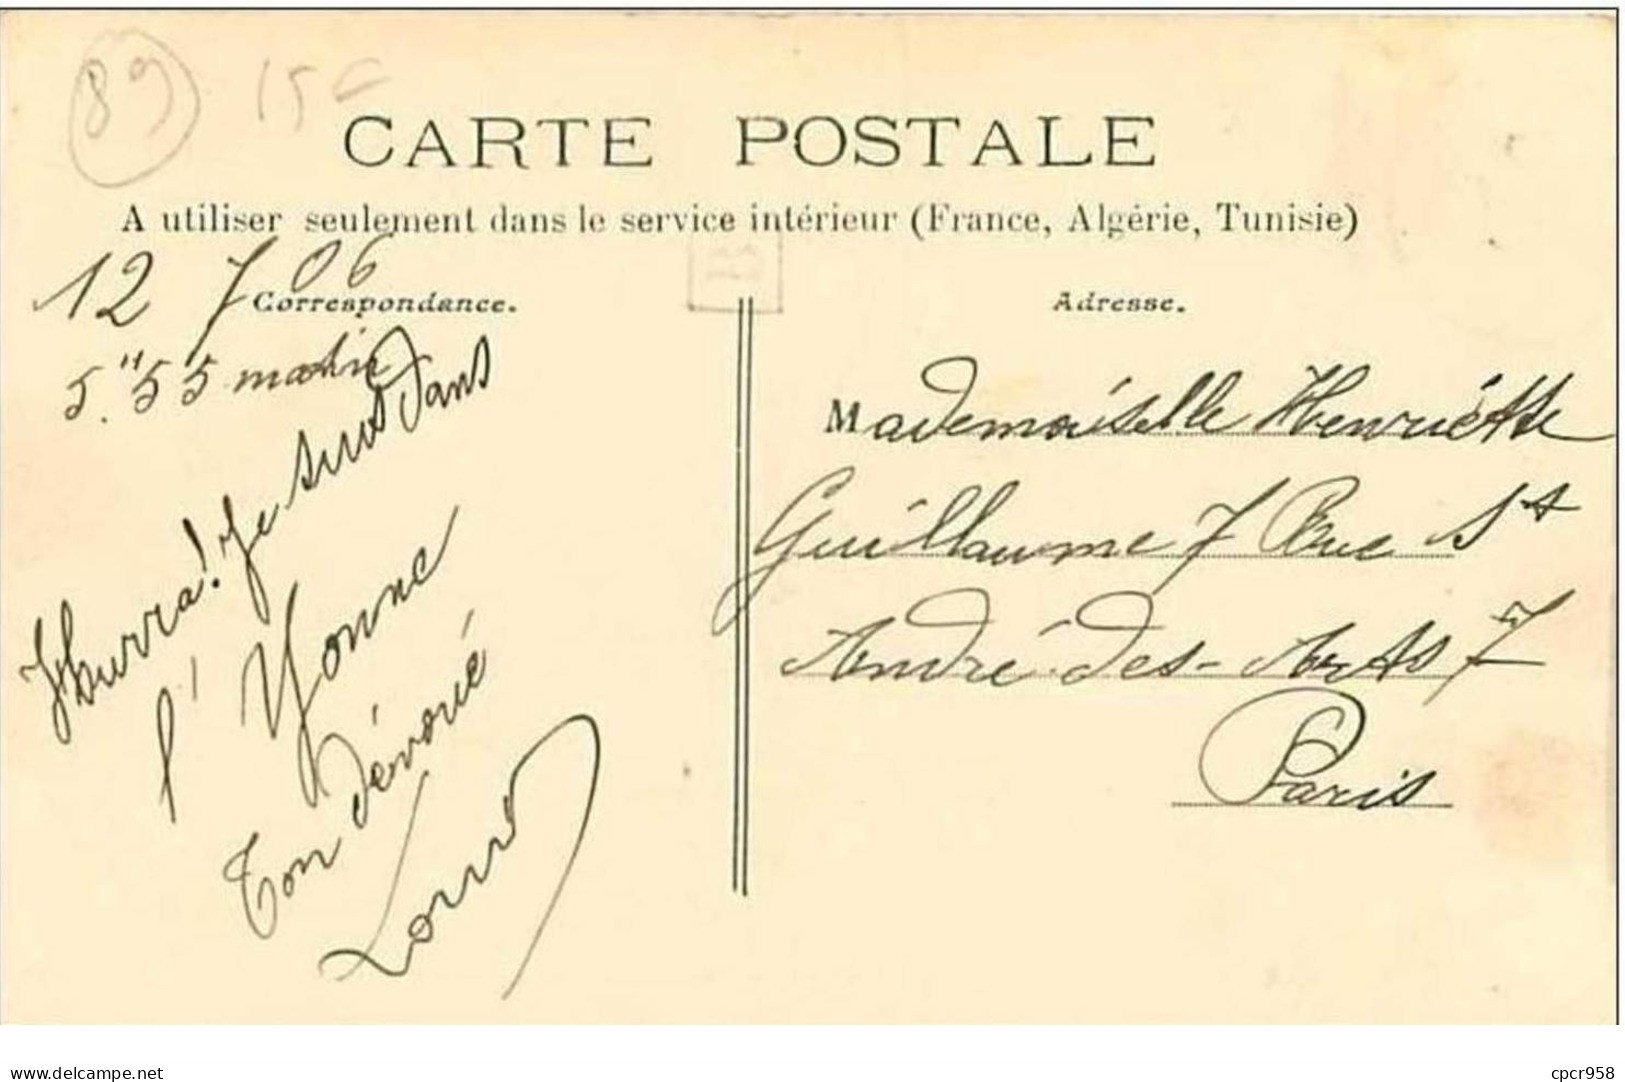 89 15 F
CARTE POSTALE
A utiliser seulement dans le service intérieur (France, Algérie, Tunisie)
B
12 7 06
Correspondance.
5."55 matin
Hurra! Je suis dans
l'Yonne
Ton dévoué
Louis
Adresse.
Mademoiselle Henriette
Guillaume 7 Rue St
André-des-Arts 7
Paris
www.delcampe.net
cpcr958